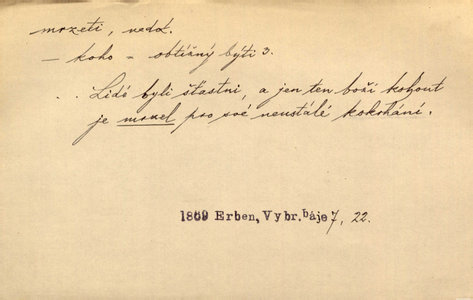 mrzeti, nedok.
— koho = obtížný býti 3.
.. Lidé byli šťastni, a jen ten boží kohout
je mrzel pro své neustálé kokrhání.
1869 Erben, Vybr. báje 7, 22.